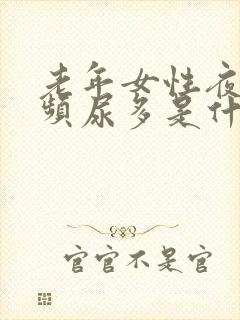 老年女性夜
频尿多是什
官官不是官